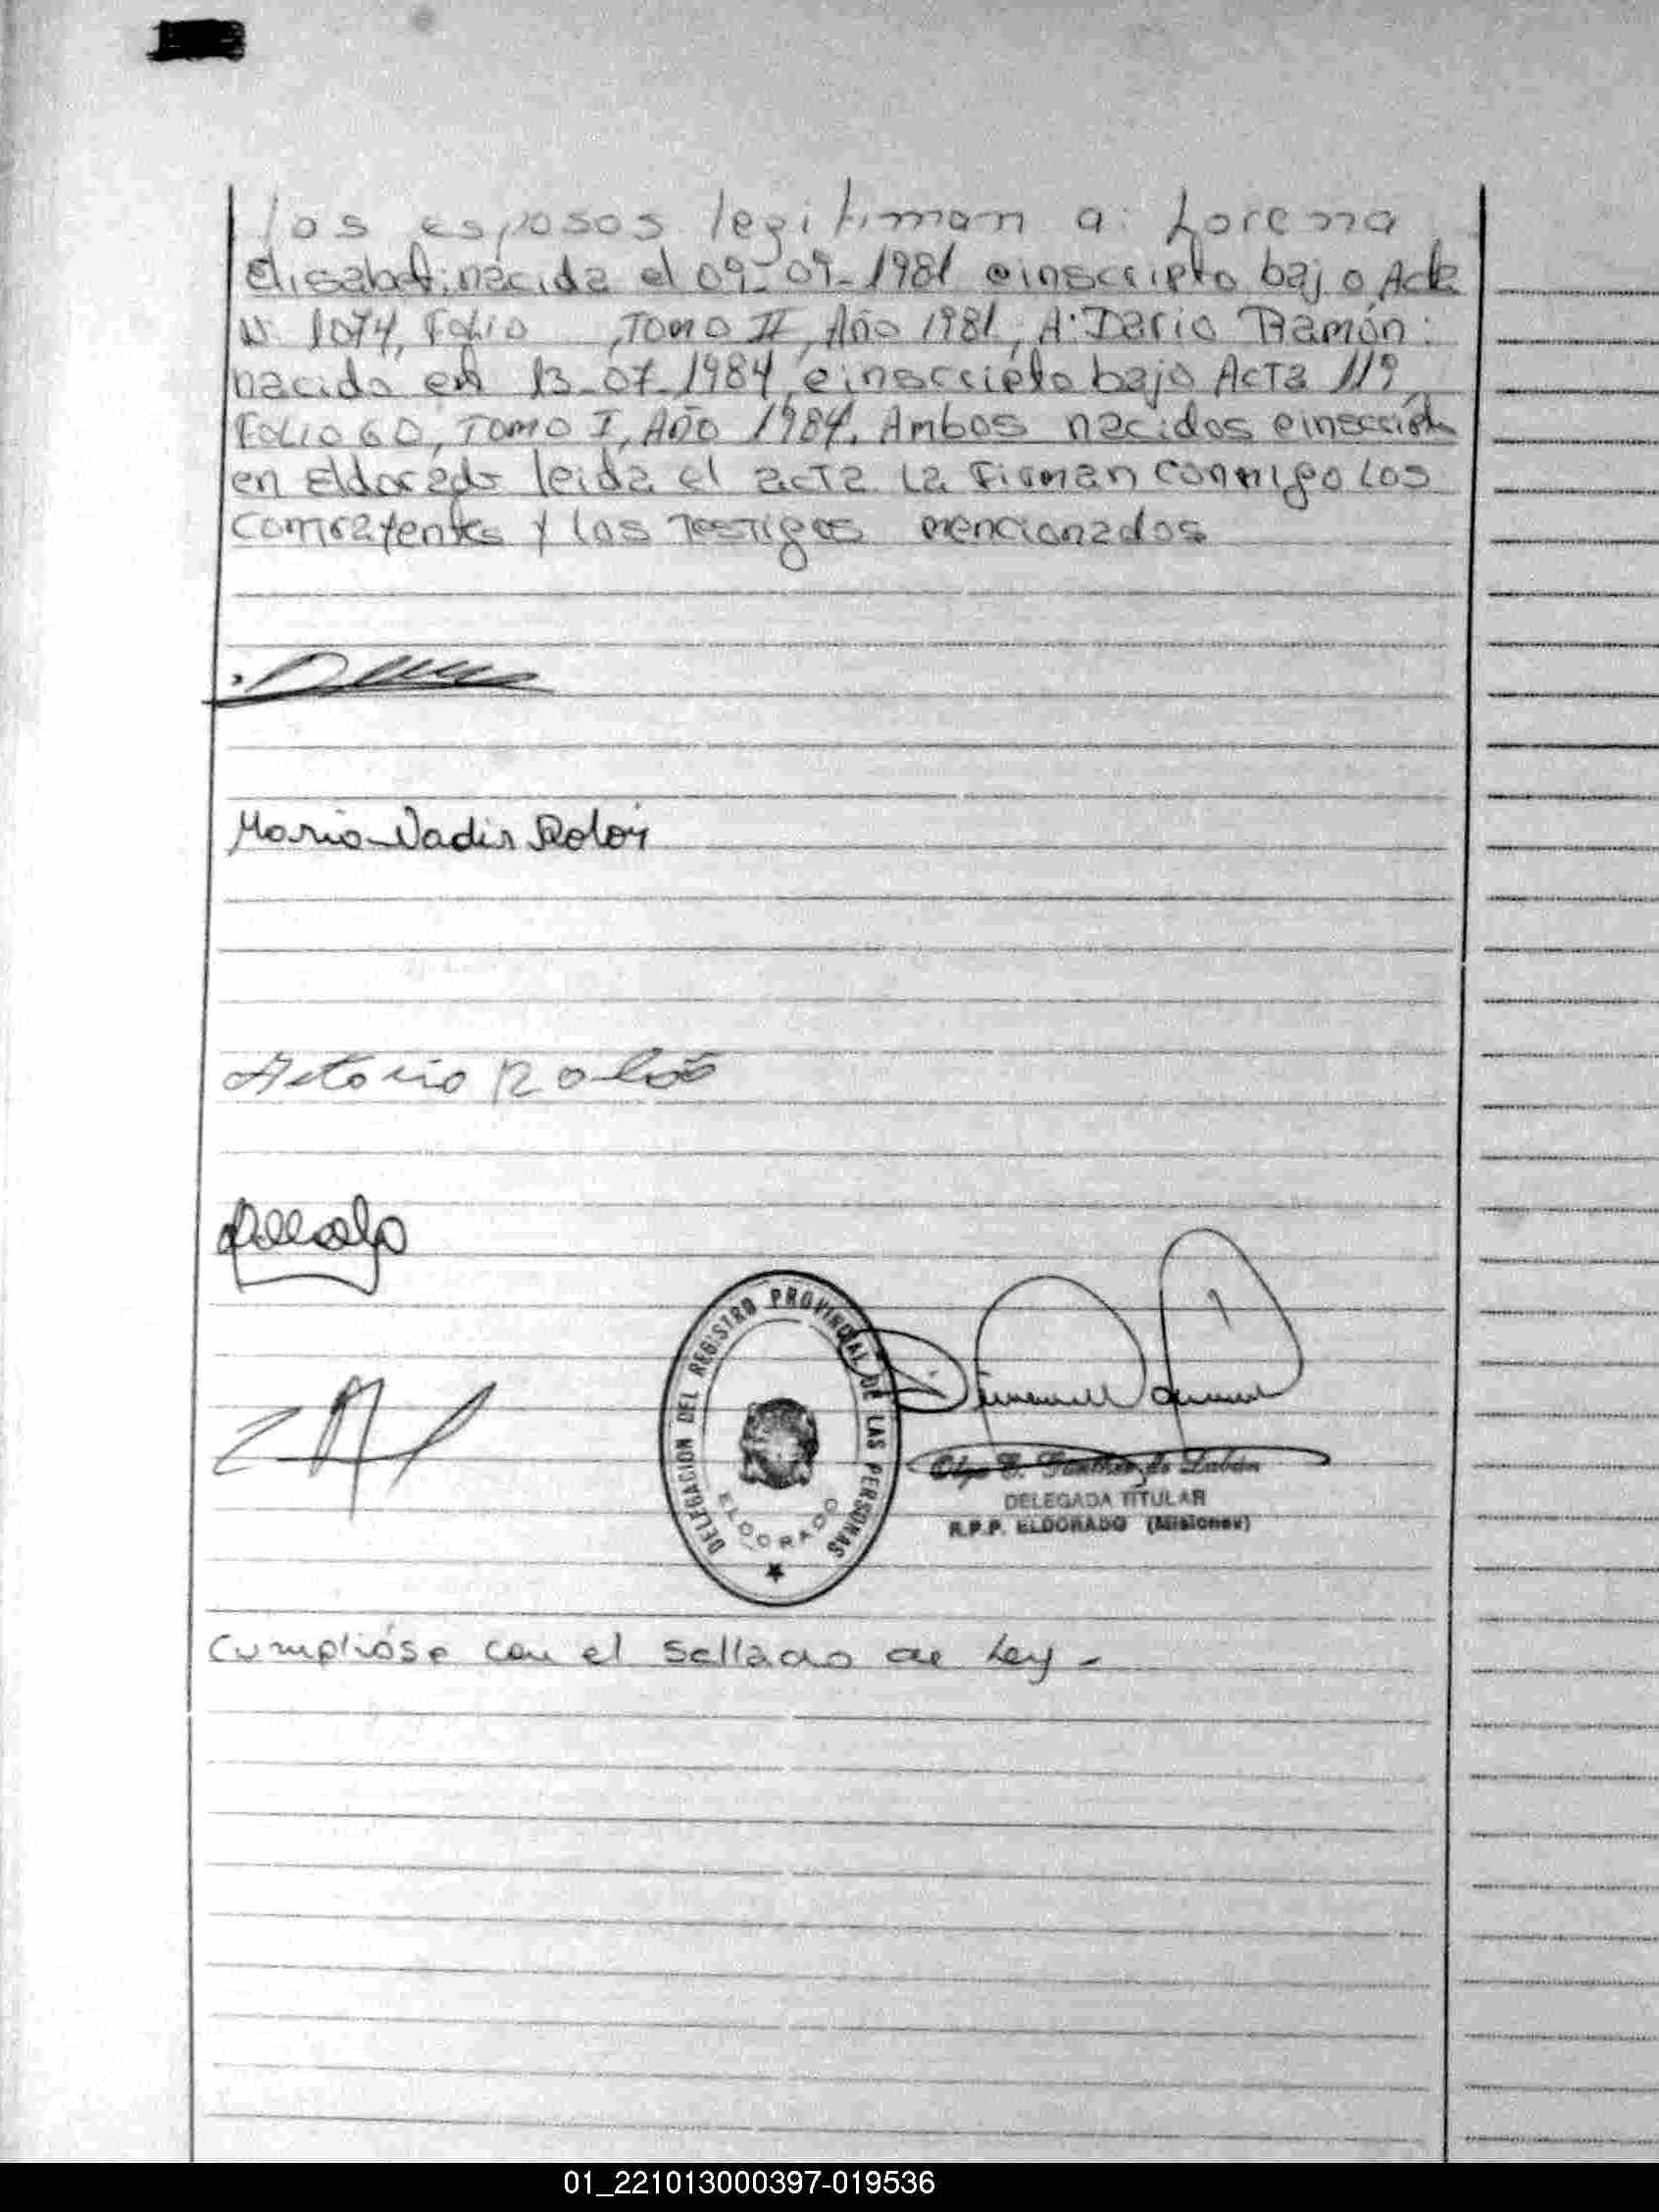 los esposos legitiman a: Lorena
Elisabet: nacida el 09-09-1981 e inscripto bajo Acta
N. 1074, Folio , Tomo II, Año 1981, A: Dario Ramón:
nacido en 13-07-1984 e inscripto bajo Acta 119,
Folio 60, Tomo I, Año 1984. Ambos nacidos e
en Eldorado leida el acta la firman conmigo los
contrayentes y los testigos mencionados
Maria Nadir
Antonio
DELEGACION DEL REGISTRO PROVINCIAL DE LAS PERSONAS
ELDORADO
Olga de
DELEGADA TITULAR
R.P.P. ELDORADO (Misiones)
Cumplióse con el sellado de Ley -
01_221013000397-019536